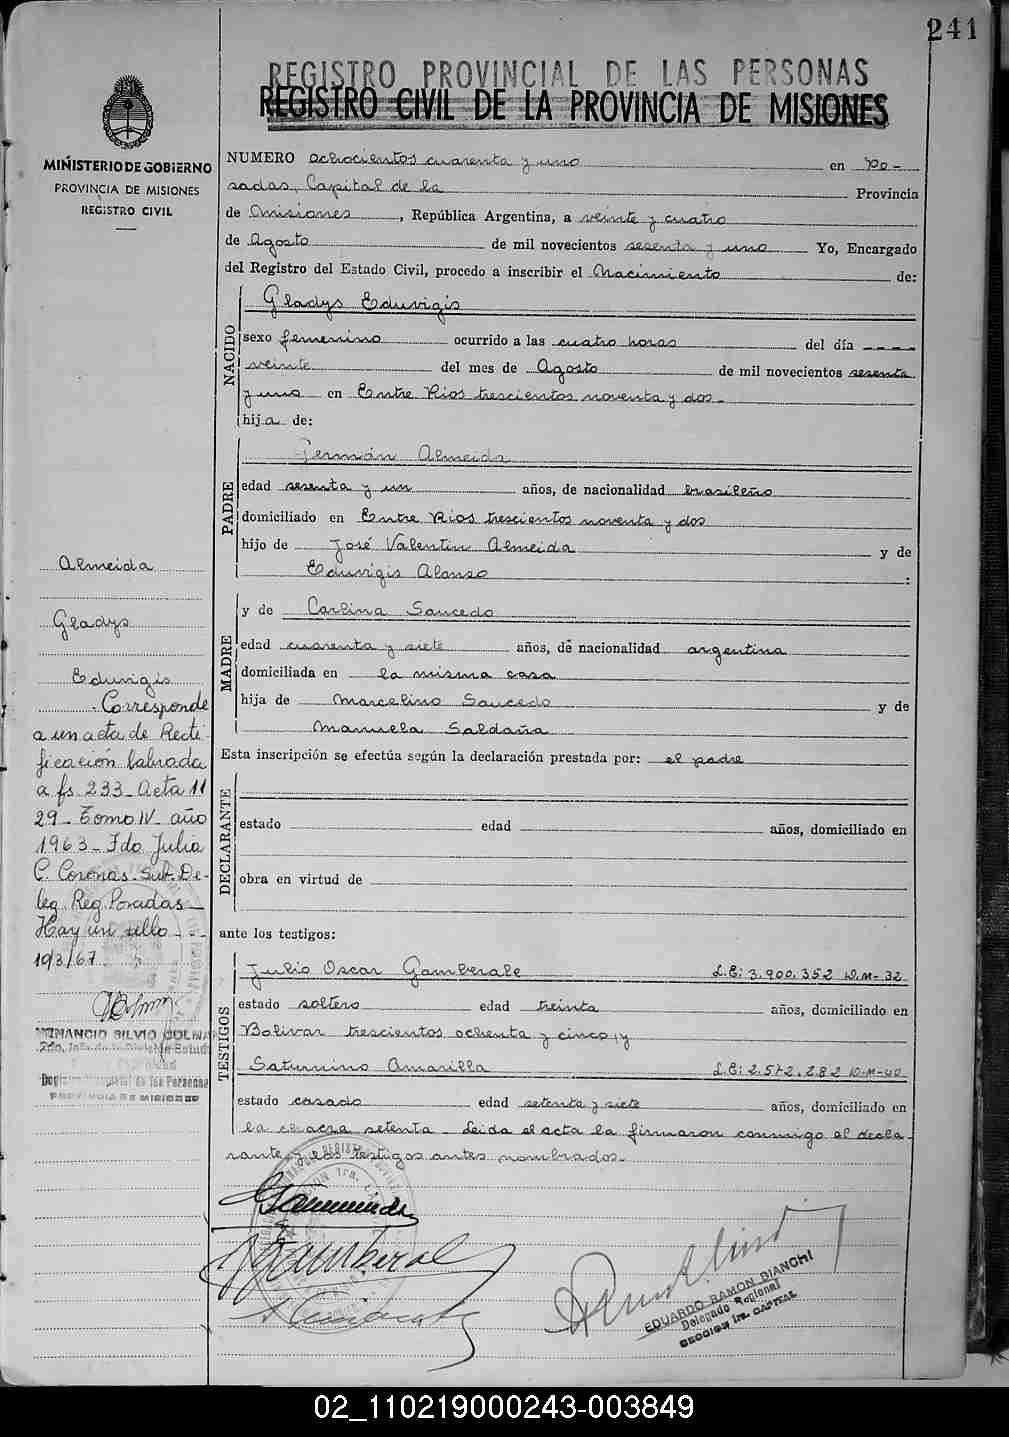 241
REGISTRO PROVINCIAL DE LAS PERSONAS
REGISTRO CIVIL DE LA PROVINCIA DE MISIONES
MINISTERIO DE GOBIERNO
PROVINCIA DE MISIONES
REGISTRO CIVIL
NUMERO ochocientos cuarenta y uno en Po-
sadas, Capital de la Provincia
de Misiones, República Argentina, a veinte y cuatro
de Agosto de mil novecientos sesenta y uno Yo, Encargado
del Registro del Estado Civil, procedo a inscribir el Nacimiento de:
NACIDO
Gladys Eduvigis
sexo femenino ocurrido a las cuatro horas del día ----
veinte del mes de Agosto de mil novecientos sesenta
y uno en Entre Rios trescientos noventa y dos.
hija de:
PADRE
Germán Almeida
edad sesenta y un años, de nacionalidad brasileño
domiciliado en Entre Rios trescientos noventa y dos
hijo de José Valentin Almeida y de
Eduvigis Alonso :
MADRE
y de Carlina Saucedo
edad cuarenta y siete años, de nacionalidad argentina
domiciliada en la misma casa
hija de Marcelino Saucedo y de
Manuela Saldaña
Esta inscripción se efectúa según la declaración prestada por: el padre
DECLARANTE
estado edad años, domiciliado en
obra en virtud de
ante los testigos:
TESTIGOS
Julio Oscar Gamberale L.E: 3.900.352 D.M-32
estado soltero edad treinta años, domiciliado en
Bolivar trescientos ochenta y cinco, y
Saturnino Amarilla L.E: 2.572.282 D-M-40
estado casado edad setenta y siete años, domiciliado en
la chacra setenta - Leida el acta la firmaron conmigo el decla-
rante y los testigos antes nombrados.-
Almeida
Gladys
Eduvigis
- Corresponde
a un acta de Recti-
ficación labrada
a fs 233 - Acta 11
29 - Tomo IV - año
1963 - Fdo Julia
C. Coronas - Sub. De-
leg. Reg. Posadas -
Hay un sello - - -
10/3/67
VENANCIO SILVIO COLMAN
2do. Jefe de la División
Registro Provincial de las Personas
PROVINCIA DE MISIONES
EDUARDO RAMON BIANCHI
Delegado Regional
SECCION 1ra. CAPITAL
02_110219000243-003849